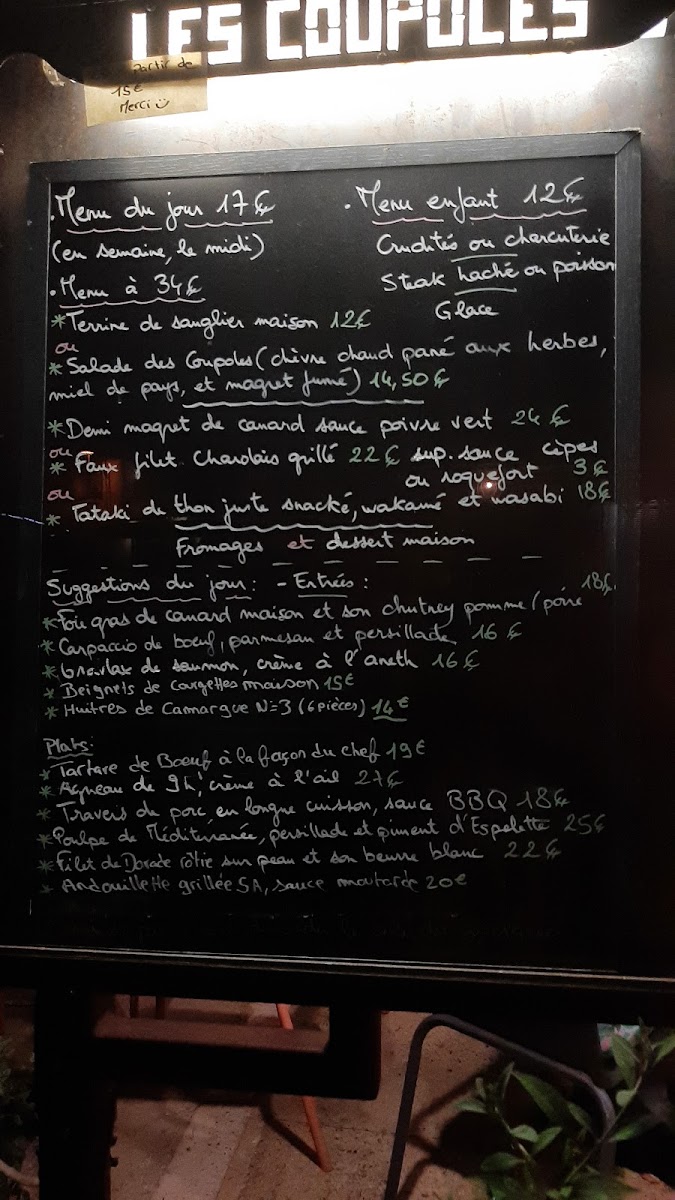 LES COUPOLES
partir de
15€
Merci
.Menu du jour 17€
(en semaine, le midi)
. Menu enfant 12€
Crudités ou charcuterie
Steak haché ou poisson
Glace
. Menu à 34€
*Terrine de sanglier maison 12€
ou
* Salade des Coupoles (chèvre chaud pané aux herbes,
miel de pays, et magret fumé) 14,50€
*Demi magret de canard sauce poivre vert 24€
ou
* Faux filet Charolais grillé 22€ sup. sauce cèpes
ou roquefort 3€
ou
* Tataki de thon juste snacké, wakamé et wasabi 18€
Fromages et dessert maison
Suggestions du jour: - Entrées:
*Foie gras de canard maison et son chutney pomme/poire 18€
*Carpaccio de boeuf, parmesan et persillade 16€
*Gravlax de saumon, crème à l'aneth 16€
* Beignets de courgettes maison 15€
* Huîtres de Camargue N=3 (6 pièces) 14€
Plats:
* Tartare de Boeuf à la façon du chef 19€
* Agneau de 9h, crème à l'ail 27€
* Travers de porc, en longue cuisson, sauce BBQ 18€
*Poulpe de Méditerranée, persillade et piment d'Espelette 25€
*Filet de Dorade rôtie sur peau et son beurre blanc 22€
* Andouillette grillée 5A, sauce moutarde 20€